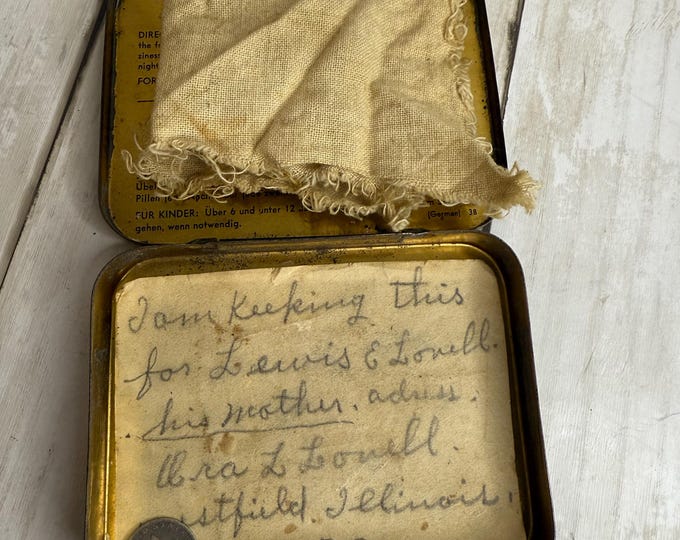 DIREC
the f
ziness
night
FOR
Über
Pillen
m
FUR KINDER: Über 6 und unter 12
(German) 38
gehen, wenn notwendig.
I am Keeking this
for Lewis E Lovell.
his mother. adress.
Ura L Lovell.
stfield Illinois.